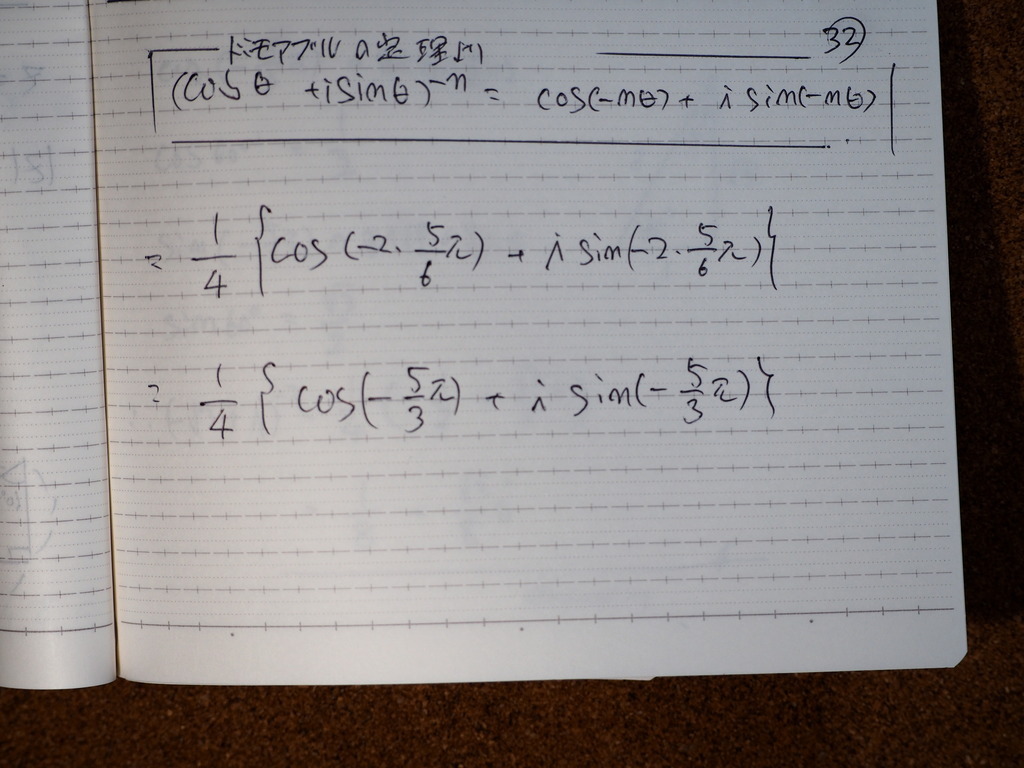 32
ドモアブルの定理より
(cosθ +isinθ)^-n = cos(-nθ) + i sin(-nθ)
= 1/4 {cos(-2・5/6π) + i sin(-2・5/6π)}
= 1/4 {cos(-5/3π) + i sin(-5/3π)}